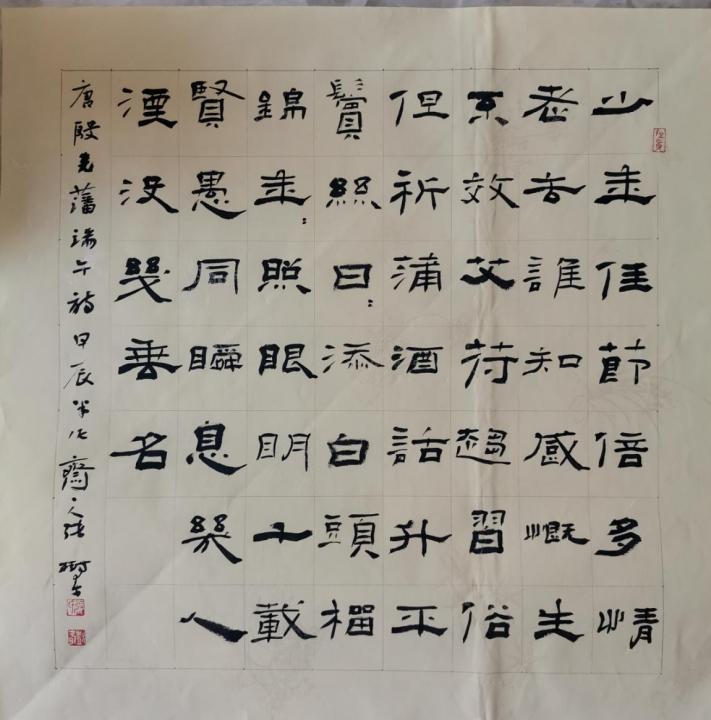 少年佳節倍多情
老去誰知感慨生
不效艾符趨習俗
但祈蒲酒話升平
鬢絲日:添白頭榴
錦年:照眼明千載
賢愚同瞬息幾人
湮没幾垂名
唐殷堯藩端午詩甲辰半化齋人張樹